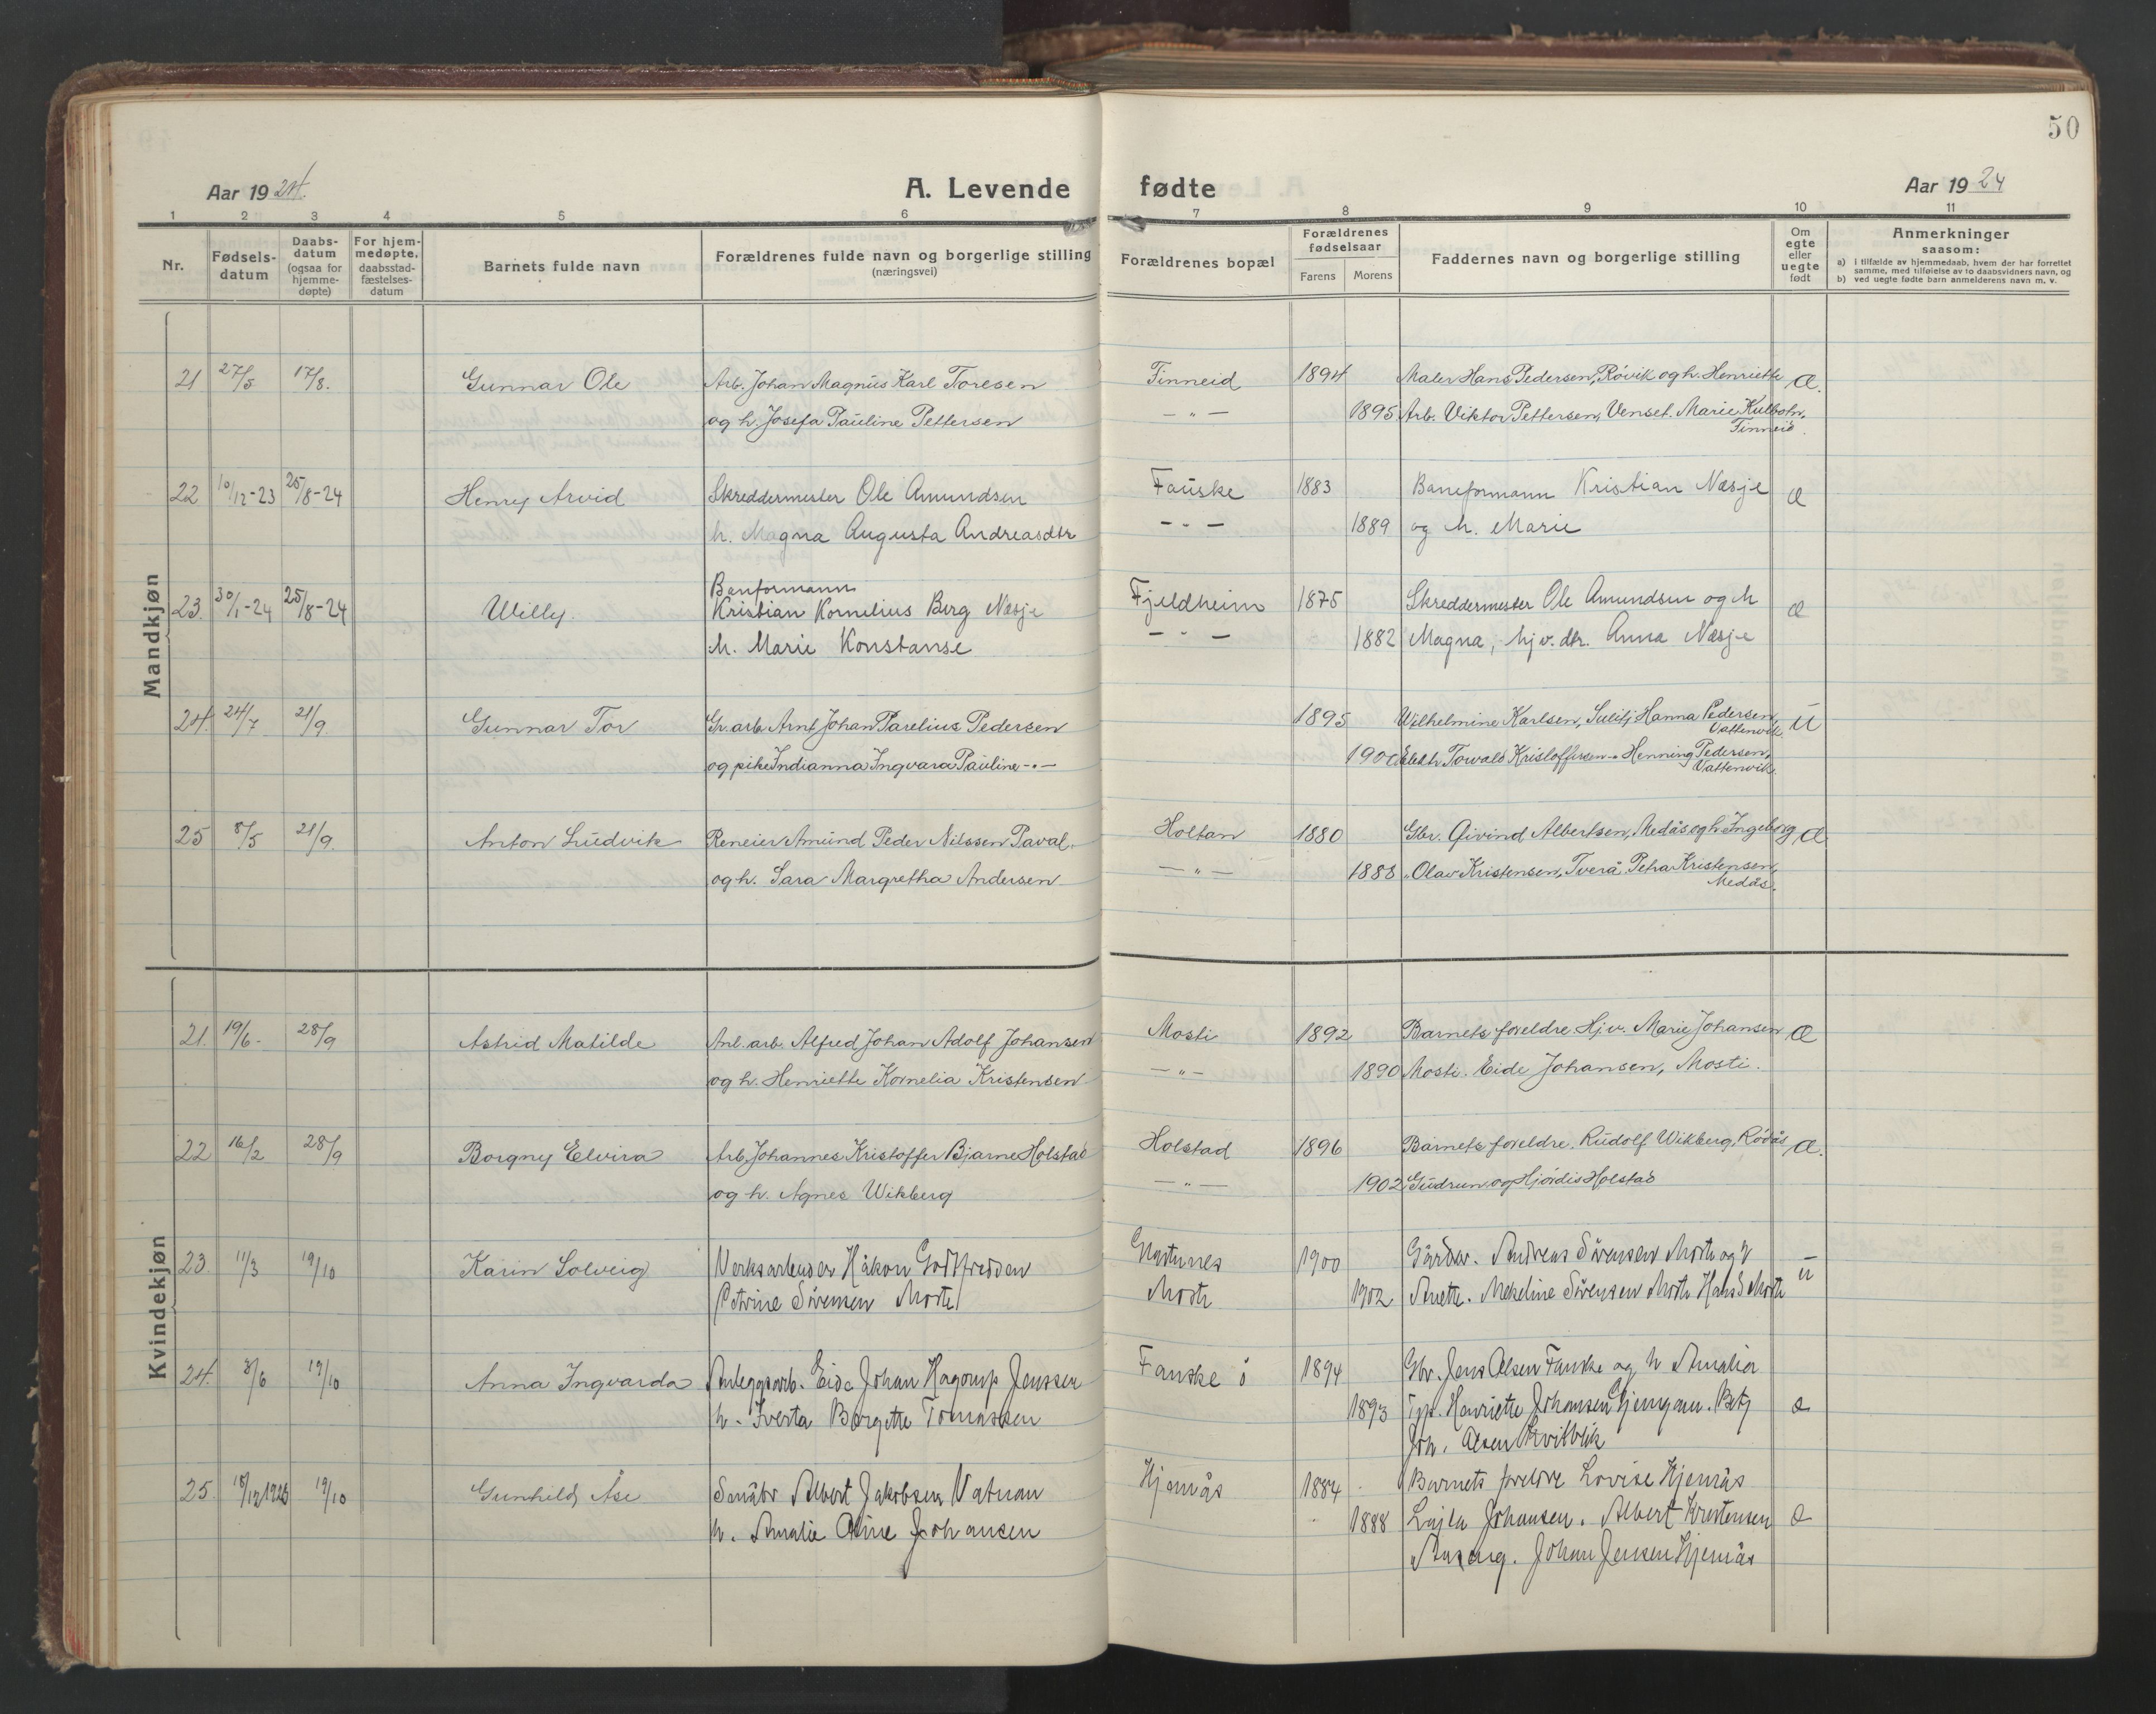 50
Aar 1924.
A. Levende fødte
Aar 1924
1 2 3 4 5 6 7 8 9 10 11
Nr.
Fødsels-
datum
Daabs-
datum
(ogsaa for
hjemme-
døpte)
For hjem-
medøpte,
daabsstad-
fæstelses-
datum
Barnets fulde navn
Forældrenes fulde navn og borgerlige stilling
(næringsvei)
Forældrenes bopæl
Forældrenes
fødselsaar
Farens Morens
Faddernes navn og borgerlige stilling
Om
egte
eller
uegte
født
Anmerkninger
saasom:
a) i tilfælde av hjemmedaab, hvem der har forrettet
samme, med tilføielse av to daabsvidners navn, og
b) ved uegte fødte barn anmelderens navn m. v.
Mandkjøn
21 27/5 17/8. Gunnar Ole Arb. Johan Magnus Karl Toresen Finneid 1894 Maler Hans Pedersen, Røvik og h. Henriette æ.
og h. Josefa Pauline Pettersen — " — 1895 Arb. Viktor Pettersen, Venset. Marie Kulbotn,
Finneid.
22 10/12-23 25/8-24 Henry Arvid Skreddermester Ole Amundsen Fauske 1883 Baneformann Kristian Næsje æ
h. Magna Augusta Andreasdtr — " — 1889 og h. Marie
Banformann
23. 30/1-24 25/8-24 Willy. Kristian Kornelius Berg Næsje Fjeldheim 1875 Skreddermester Ole Amundsen og h æ
h. Marie Konstanse — " — 1882 Magna, hjv. dtr. Anna Næsje
24. 24/7 21/9. Gunnar Tor Gr. arb. Arnt Johan Parelius Pedersen 1895 Wilhelmine Karlsen, Sulitj Hanna Pedersen, u
Vattenvik
og pike Indianna Ingvara Pauline -"- 1900 Torvald Kristoffersen -" Henning Pedersen,
Vattenvik.
25 8/5 21/9. Anton Ludvik Reneier Amund Peder Nilssen Paval. Holtan 1880 Gbr. Øivind Albertsen, Medås og h. Ingeborg, æ
og h. Sara Margretha Andersen — " — 1888 " Olav Kristensen, Tverå. Petra Kristensen,
Medås.
Kvindekjøn
21. 19/6. 28/9 Astrid Matilde Anl. arb. Alfred Johan Adolf Johansen Mosti 1892 Barnets foreldre. Hjv. Marie Johansen æ
og h. Henriette Kornelia Kristensen — " — 1890 Mosti. Eide Johansen, Mosti.
22 16/2 28/9 Borgny Elvira Arb. Johannes Kristoffer Bjarne Holstad Holstad 1896 Barnets foreldre. Rudolf Wikberg, Rødås æ.
og h. Agnes Wikberg — " — 1902 Gudrun og Hjørdis Holstad
23 11/3 19/10 Karin Solveig Verksarbeider Håkon Godtfredsen 1900 Gårdbr. Andreas Sörensen Mosti og h u
Petrine Sörensen Mosti Mosti 1902 Anette. Mekeline Sörensen Mosti Hans S Mosti
24. 8/6 19/10 Anna Ingvarda Anleggsarb. Eide Johan Hagerup Jenssen Fauske ö 1894 Gbr. Jens Olsen Fauske og h Amalia
h. Iverta Bergette Tomassen 1893 Henriette Johansen Betz æ
Joh. Olsen Kvitblik
25. 18/12 1923 19/10 Gunhild Åse Småbr Albert Jakobsen Vatnan Hjemås 1884 Barnets foreldre Lovise Hjemås
h. Amalie Oline Johansen 1888 Lajla Johansen. Albert Kristensen æ
Johan Jensen Hjemås